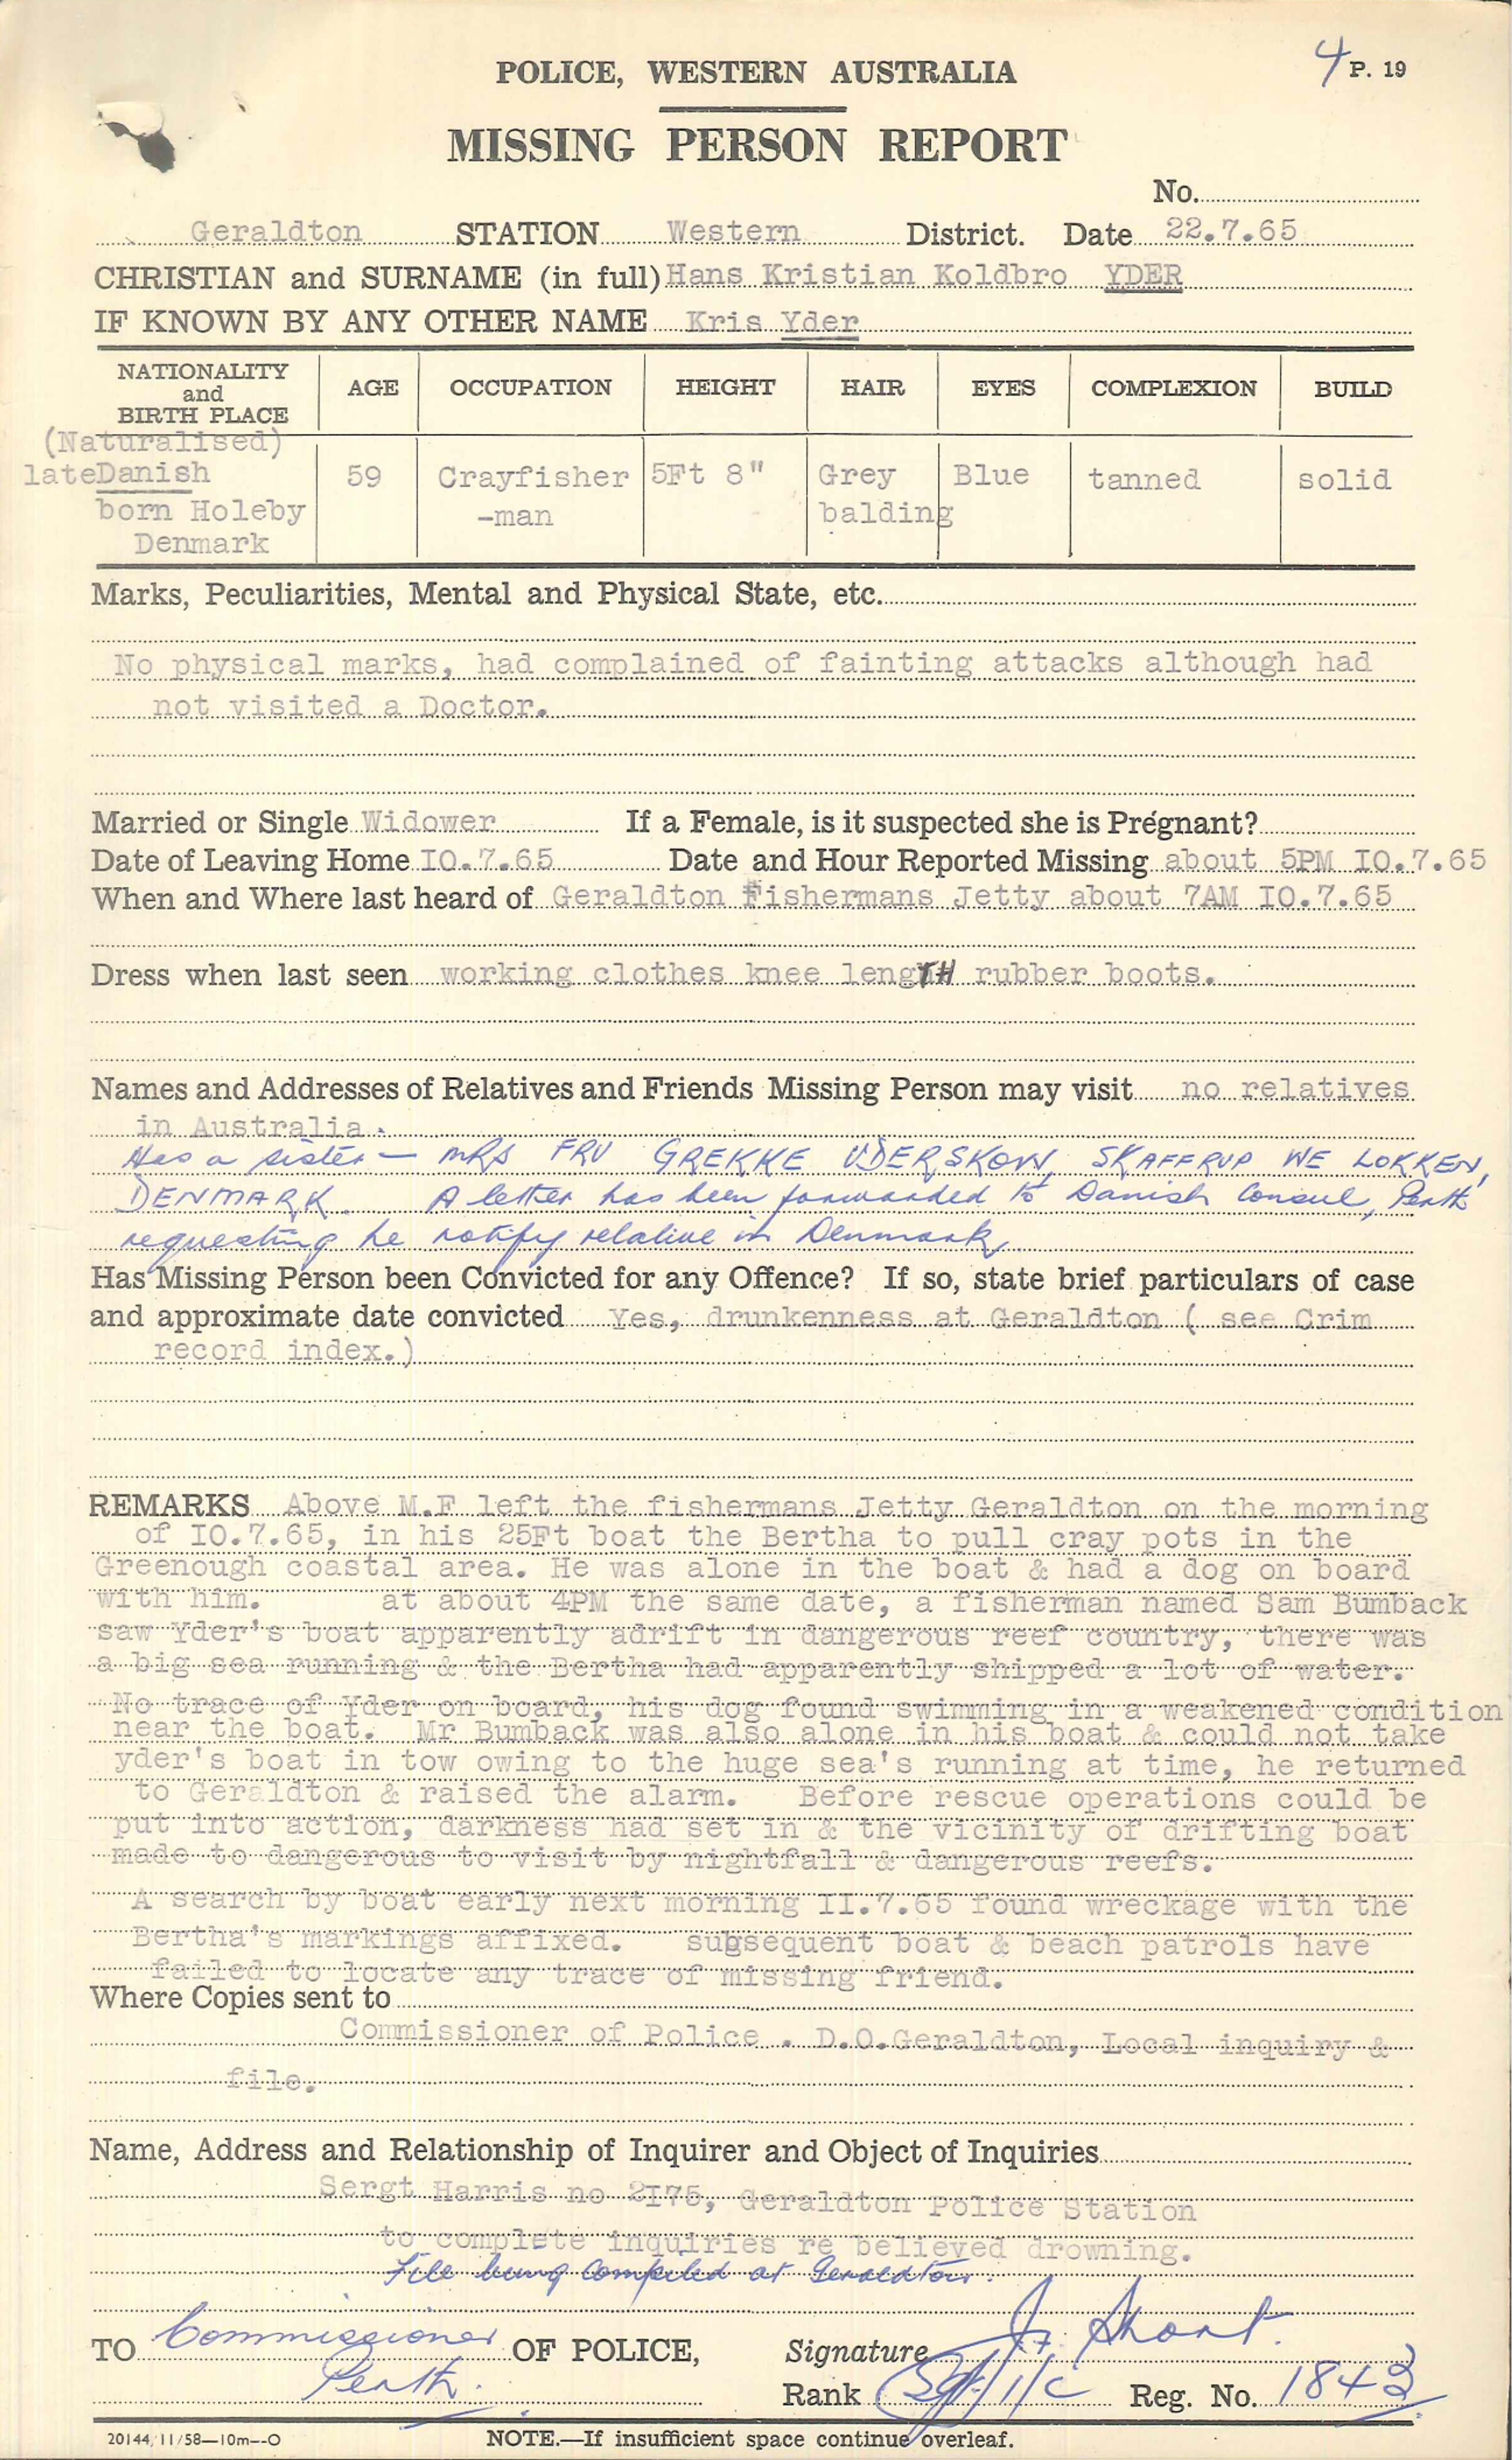 4 P. 19
POLICE, WESTERN AUSTRALIA
MISSING PERSON REPORT
No.
Geraldton STATION Western District. Date 22.7.65
CHRISTIAN and SURNAME (in full) Hans Kristian Koldbro YDER
IF KNOWN BY ANY OTHER NAME Kris Yder
NATIONALITY and BIRTH PLACE AGE OCCUPATION HEIGHT HAIR EYES COMPLEXION BUILD
(Naturalised)
late Danish 59 Crayfisher 5Ft 8" Grey Blue tanned solid
born Holeby -man balding
Denmark
Marks, Peculiarities, Mental and Physical State, etc.
No physical marks, had complained of fainting attacks although had
not visited a Doctor.
Married or Single Widower If a Female, is it suspected she is Pregnant?
Date of Leaving Home IO.7.65 Date and Hour Reported Missing about 5PM IO.7.65
When and Where last heard of Geraldton Fishermans Jetty about 7AM IO.7.65
Dress when last seen working clothes knee lengTH rubber boots.
Names and Addresses of Relatives and Friends Missing Person may visit no relatives
in Australia.
Has a sister — MRS FRU GREKKE UDERSKOW, SKAFFRUP WE LOKKEN,
DENMARK. A letter has been forwarded to Danish Consul, Perth
requesting he notify relative in Denmark,
Has Missing Person been Convicted for any Offence? If so, state brief particulars of case
and approximate date convicted Yes, drunkenness at Geraldton ( see Crim
record index.)
REMARKS Above M.F left the fishermans Jetty Geraldton on the morning
of IO.7.65, in his 25Ft boat the Bertha to pull cray pots in the
Greenough coastal area. He was alone in the boat & had a dog on board
with him. at about 4PM the same date, a fisherman named Sam Bumback
saw Yder's boat apparently adrift in dangerous reef country, there was
a big sea running & the Bertha had apparently shipped a lot of water.
No trace of Yder on board, his dog found swimming in a weakened condition
near the boat. Mr Bumback was also alone in his boat & could not take
yder's boat in tow owing to the huge sea's running at time, he returned
to Geraldton & raised the alarm. Before rescue operations could be
put into action, darkness had set in & the vicinity of drifting boat
made to dangerous to visit by nightfall & dangerous reefs.
A search by boat early next morning II.7.65 found wreckage with the
Bertha's markings affixed. subsequent boat & beach patrols have
failed to locate any trace of missing friend.
Where Copies sent to
Commissioner of Police . D.O.Geraldton, Local inquiry &
file.
Name, Address and Relationship of Inquirer and Object of Inquiries
Sergt Harris no 2I75, Geraldton Police Station
to complete inquiries re believed drowning.
File being compiled at Geraldton.
TO Commissioner OF POLICE, Signature J. Short.
Perth. Rank Sgt 1/c Reg. No. 1843
20144/11/58—10m—O NOTE.—If insufficient space continue overleaf.